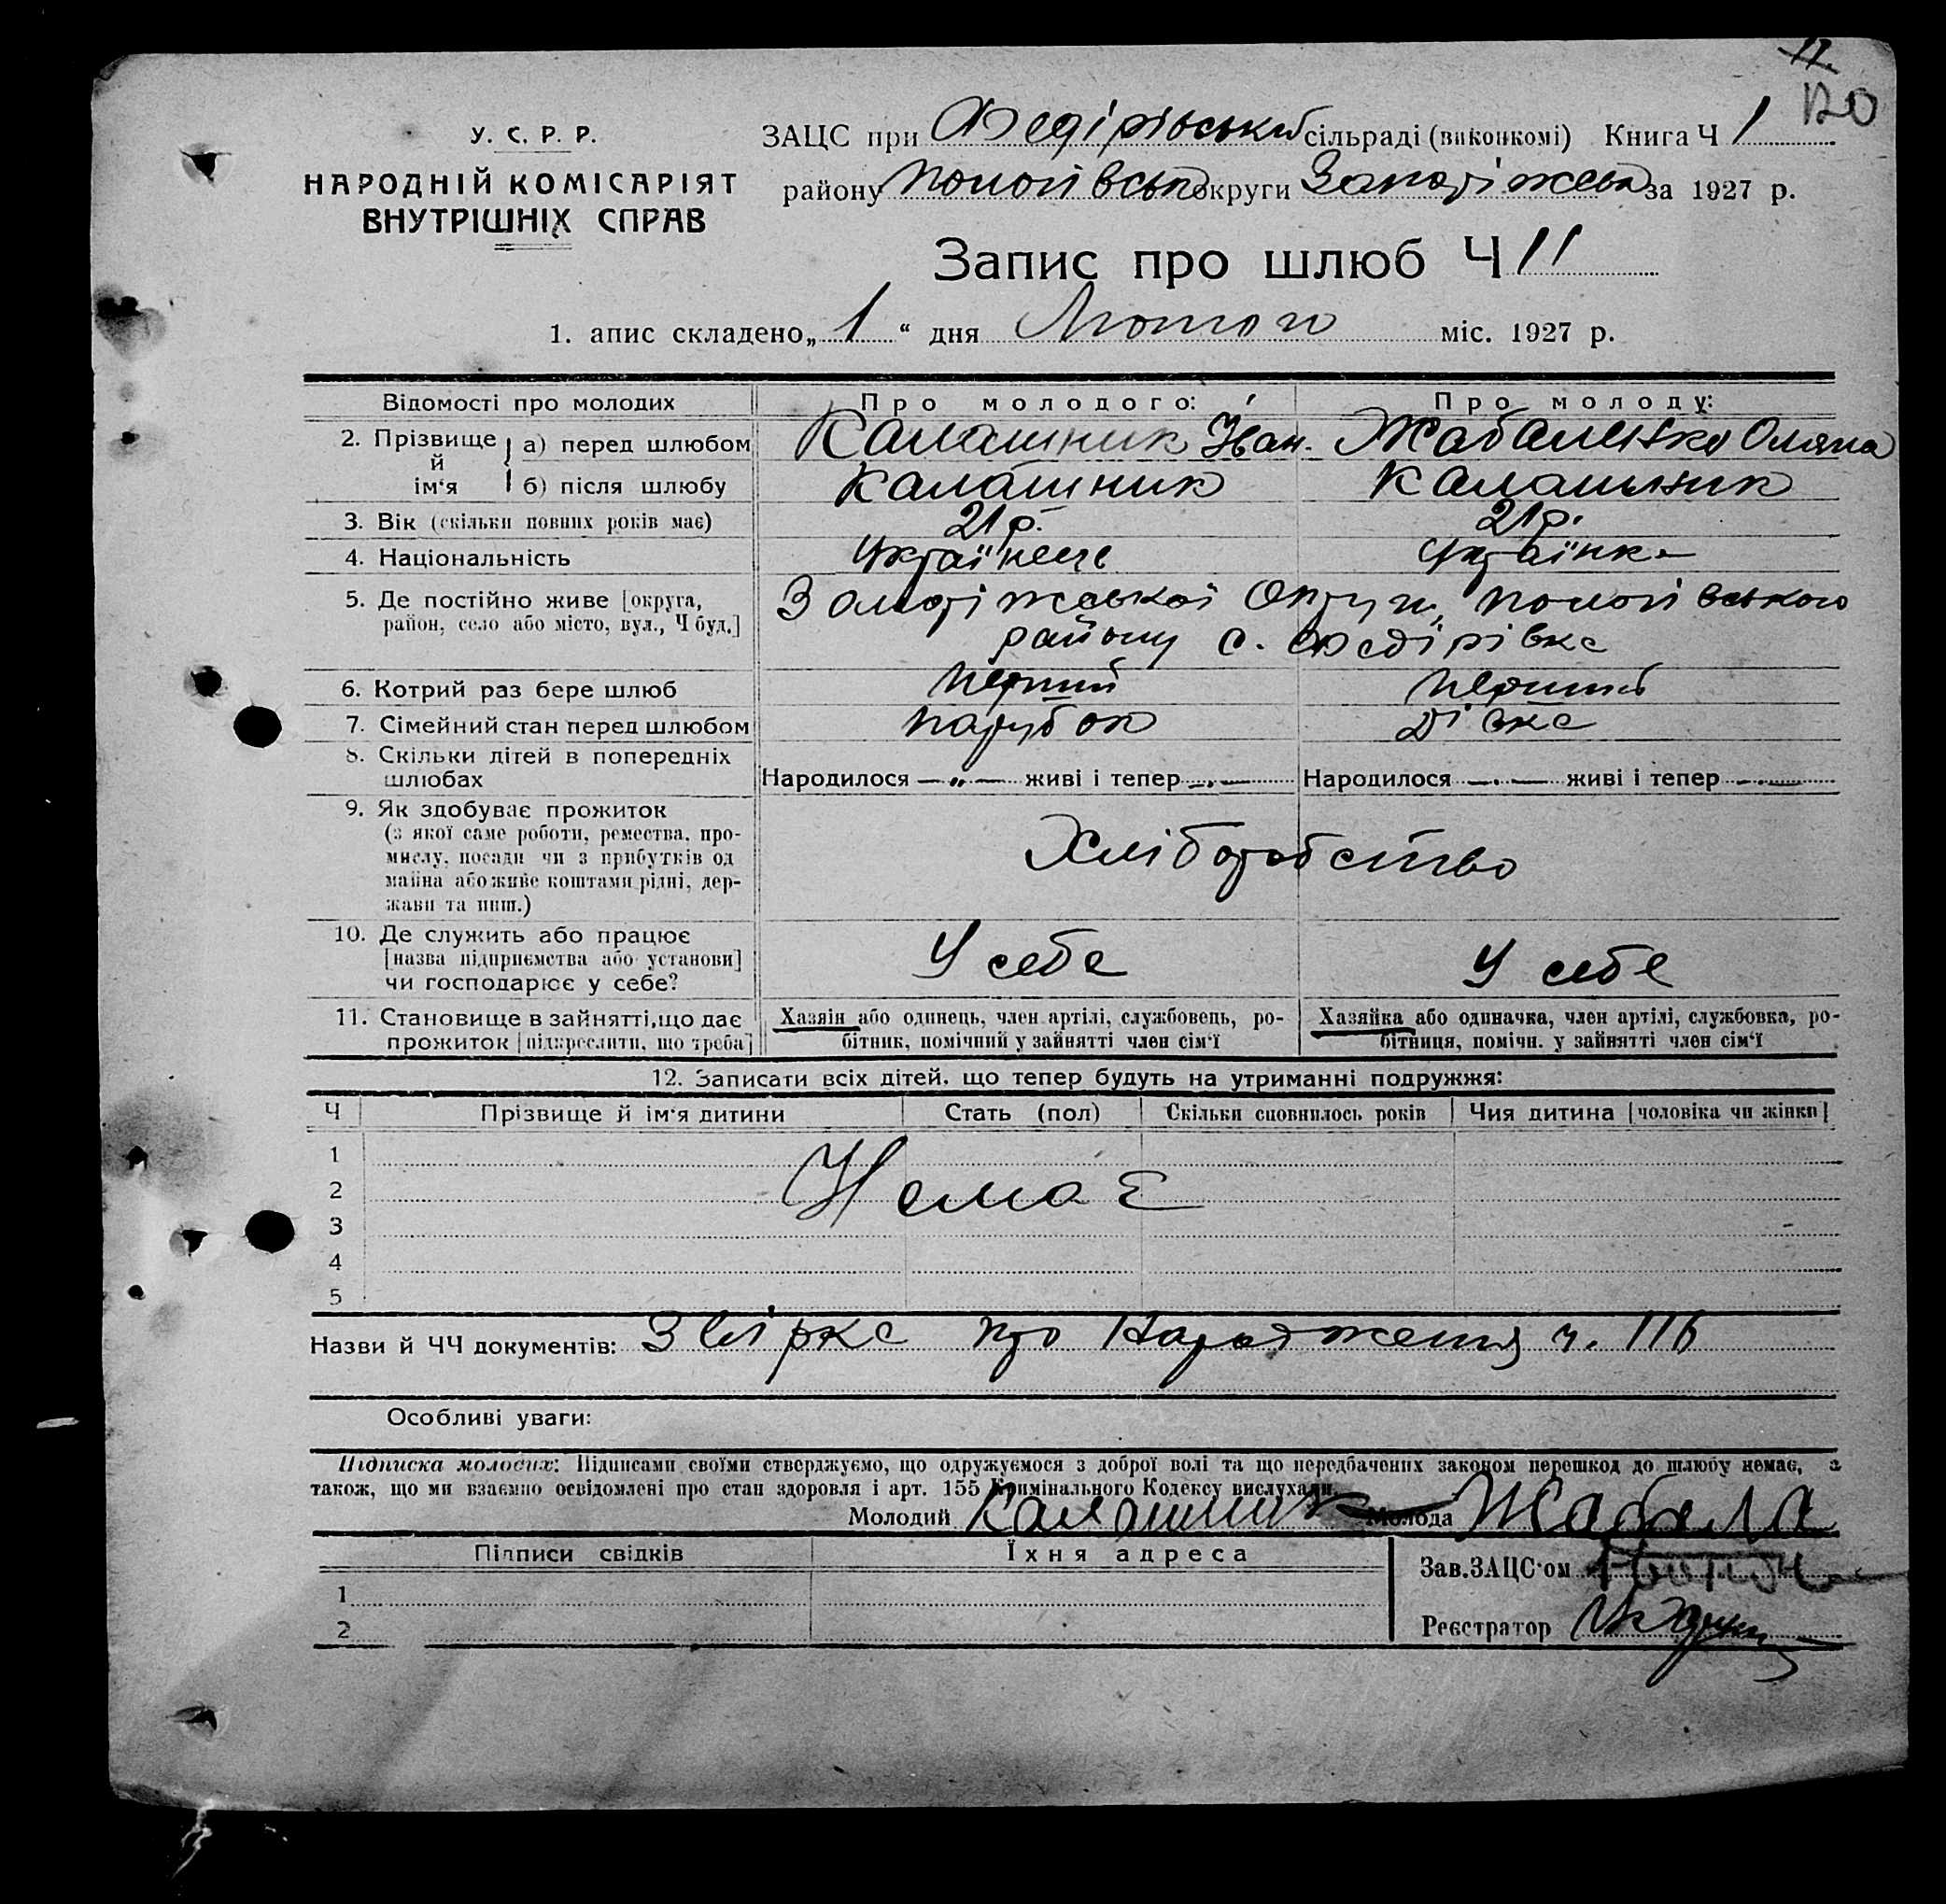 11.
120
У. С. Р. Р.
НАРОДНІЙ КОМІСАРІЯТ
ВНУТРІШНІХ СПРАВ
ЗАЦС при Федірівській сільраді (виконкомі) Книга Ч 1
району Пологівсько округи Запоріжська за 1927 р.
Запис про шлюб Ч 11
1. апис складено „ 1 “ дня Лютого міс. 1927 р.
Відомості про молодих Про молодого: Про молоду:
2. Прізвище й ім'я а) перед шлюбом Калашник Іван. Жабаленко Оляна
б) після шлюбу Калашник Калашник
3. Вік (скільки повних років має) 21 р. 21 р.
4. Національність Українець Українка
5. Де постійно живе [округа, Запоріжської Округи, Пологівського
район, село або місто, вул., Ч буд.] району с. Федірівка
6. Котрий раз бере шлюб Перший Перший
7. Сімейний стан перед шлюбом парубок дівка
8. Скільки дітей в попередніх
шлюбах Народилося — „ — живі і тепер — „ — Народилося — „ — живі і тепер — „ —
9. Як здобуває прожиток
(з якої саме роботи, ремества, про-
мислу, посади чи з прибутків од
майна або живе коштами рідні, дер-
жави та инш.)
Хліборобство
10. Де служить або працює
[назва підприємства або установи]
чи господарює у себе?
У себе У себе
11. Становище в зайнятті, що дає
прожиток [підкреслити, що треба]
Хазяїн або одинець, член артілі, службовець, ро-
бітник, помічний у зайнятті член сім'ї
Хазяйка або одиначка, член артілі, службовка, ро-
бітниця, помічн. у зайнятті член сім'ї
12. Записати всіх дітей, що тепер будуть на утриманні подружжя:
Ч Прізвище й ім'я дитини Стать (пол) Скільки сповнилось років Чия дитина [чоловіка чи жінки]
1
2 Немає
3
4
5
Назви й ЧЧ документів: Звірка про Народження ч. 116
Особливі уваги:
Підписка молодих: Підписами своїми стверджуємо, що одружуємося з доброї волі та що передбачених законом перешкод до шлюбу немає, а
також, що ми взаємно освідомлені про стан здоровля і арт. 155 Кримінального Кодексу вислухали.
Молодий Калашник Молода Жабала
Підписи свідків Їхня адреса
Зав. ЗАЦС'ом
1
Реєстратор
2